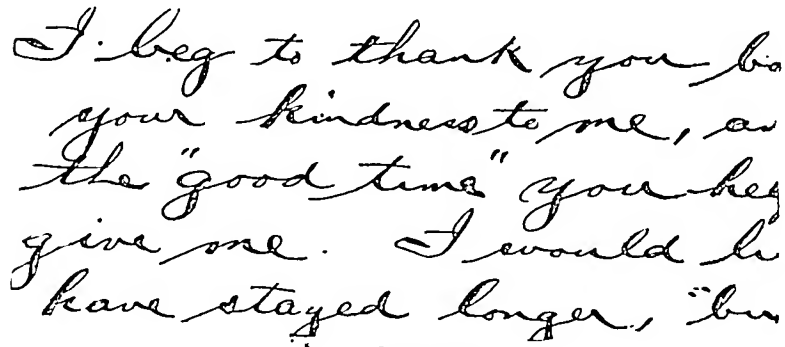 I beg to thank you bo
your kindness to me, an
the "good time" you
give me. I would
have stayed longer, "bu